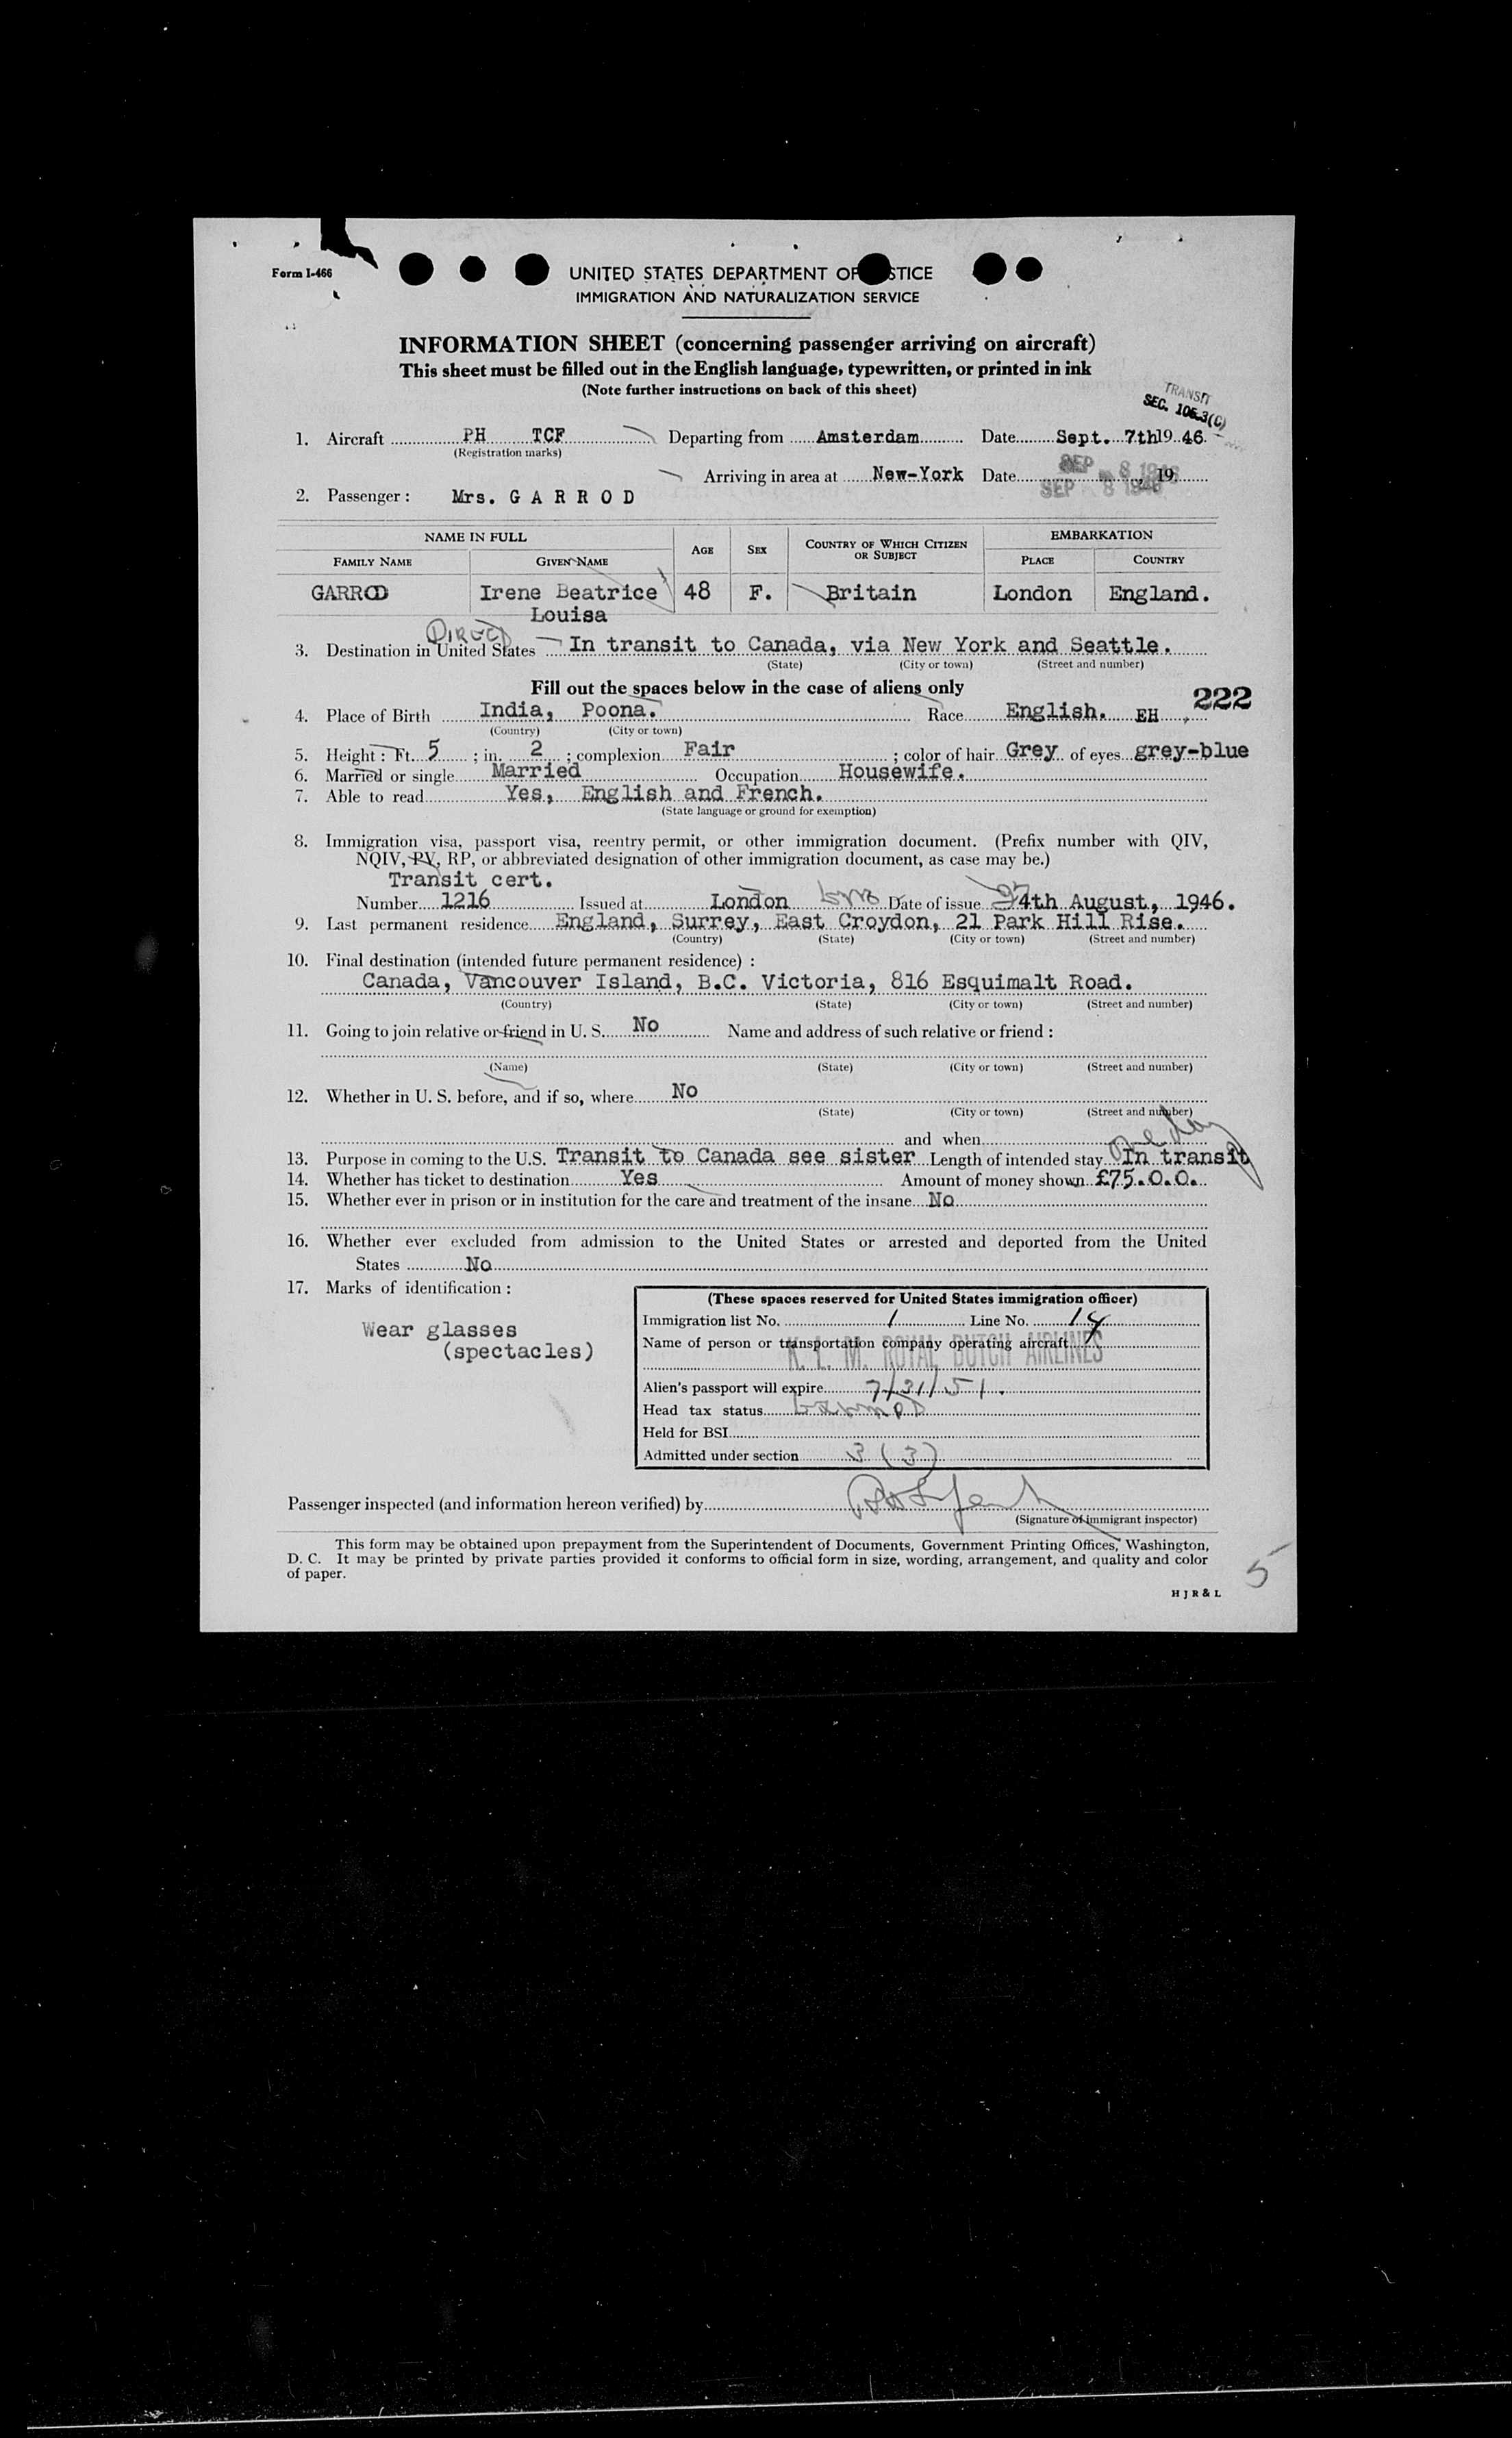 Form I-466
UNITED STATES DEPARTMENT OF STICE
IMMIGRATION AND NATURALIZATION SERVICE
INFORMATION SHEET (concerning passenger arriving on aircraft)
This sheet must be filled out in the English language, typewritten, or printed in ink
(Note further instructions on back of this sheet)
TRANSIT
SEC. 105.3(C)
1. Aircraft PH TCF Departing from Amsterdam Date Sept. 7th 19 46
(Registration marks)
Arriving in area at New-York Date SEP 8 1946, 19
SEP 8 1946
2. Passenger: Mrs. G A R R O D
NAME IN FULL AGE SEX COUNTRY OF WHICH CITIZEN OR SUBJECT EMBARKATION
FAMILY NAME GIVEN NAME PLACE COUNTRY
GARROD Irene Beatrice 48 F. Britain London England.
Louisa
DIRECT
3. Destination in United States In transit to Canada, via New York and Seattle.
(State) (City or town) (Street and number)
Fill out the spaces below in the case of aliens only
222
4. Place of Birth India, Poona. Race English. EH
(Country) (City or town)
5. Height: Ft. 5 ; in. 2 ; complexion Fair ; color of hair Grey of eyes grey-blue
6. Married or single Married Occupation Housewife.
7. Able to read Yes, English and French.
(State language or ground for exemption)
8. Immigration visa, passport visa, reentry permit, or other immigration document. (Prefix number with QIV,
NQIV, PV, RP, or abbreviated designation of other immigration document, as case may be.)
Transit cert.
Number 1216 Issued at London Date of issue 4th August, 1946.
9. Last permanent residence England, Surrey, East Croydon, 21 Park Hill Rise.
(Country) (State) (City or town) (Street and number)
10. Final destination (intended future permanent residence) :
Canada, Vancouver Island, B.C. Victoria, 816 Esquimalt Road.
(Country) (State) (City or town) (Street and number)
11. Going to join relative or friend in U. S. No Name and address of such relative or friend :
(Name) (State) (City or town) (Street and number)
12. Whether in U. S. before, and if so, where No
(State) (City or town) (Street and number)
and when
one day
13. Purpose in coming to the U.S. Transit to Canada see sister Length of intended stay In transit
14. Whether has ticket to destination Yes Amount of money shown £75.0.0.
15. Whether ever in prison or in institution for the care and treatment of the insane No
16. Whether ever excluded from admission to the United States or arrested and deported from the United
States No
17. Marks of identification :
Wear glasses
(spectacles)
(These spaces reserved for United States immigration officer)
Immigration list No. 1 Line No. 14
Name of person or transportation company operating aircraft
K. L. M. ROYAL DUTCH AIRLINES
Alien's passport will expire 7/31/51.
Head tax status
Held for BSI
Admitted under section 3 (3)
Passenger inspected (and information hereon verified) by
(Signature of immigrant inspector)
This form may be obtained upon prepayment from the Superintendent of Documents, Government Printing Offices, Washington,
D. C. It may be printed by private parties provided it conforms to official form in size, wording, arrangement, and quality and color
of paper.
5
H J R & L